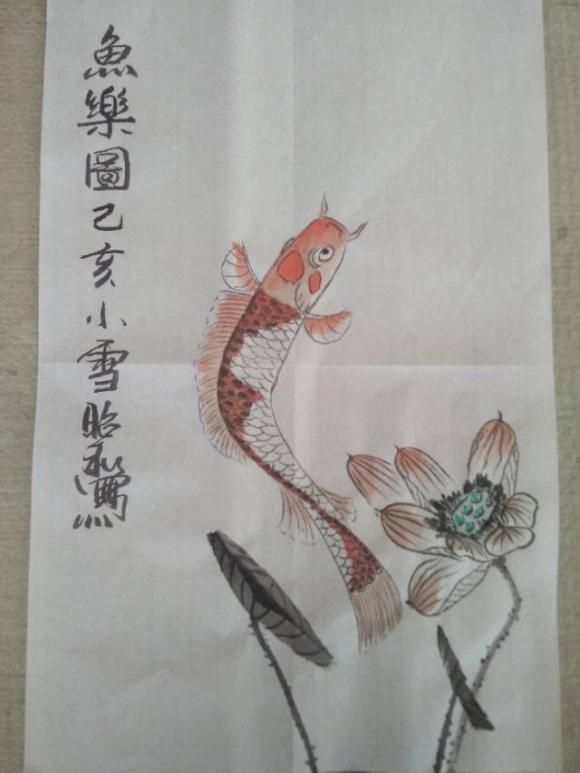 魚樂圖己亥小雪昭和寫